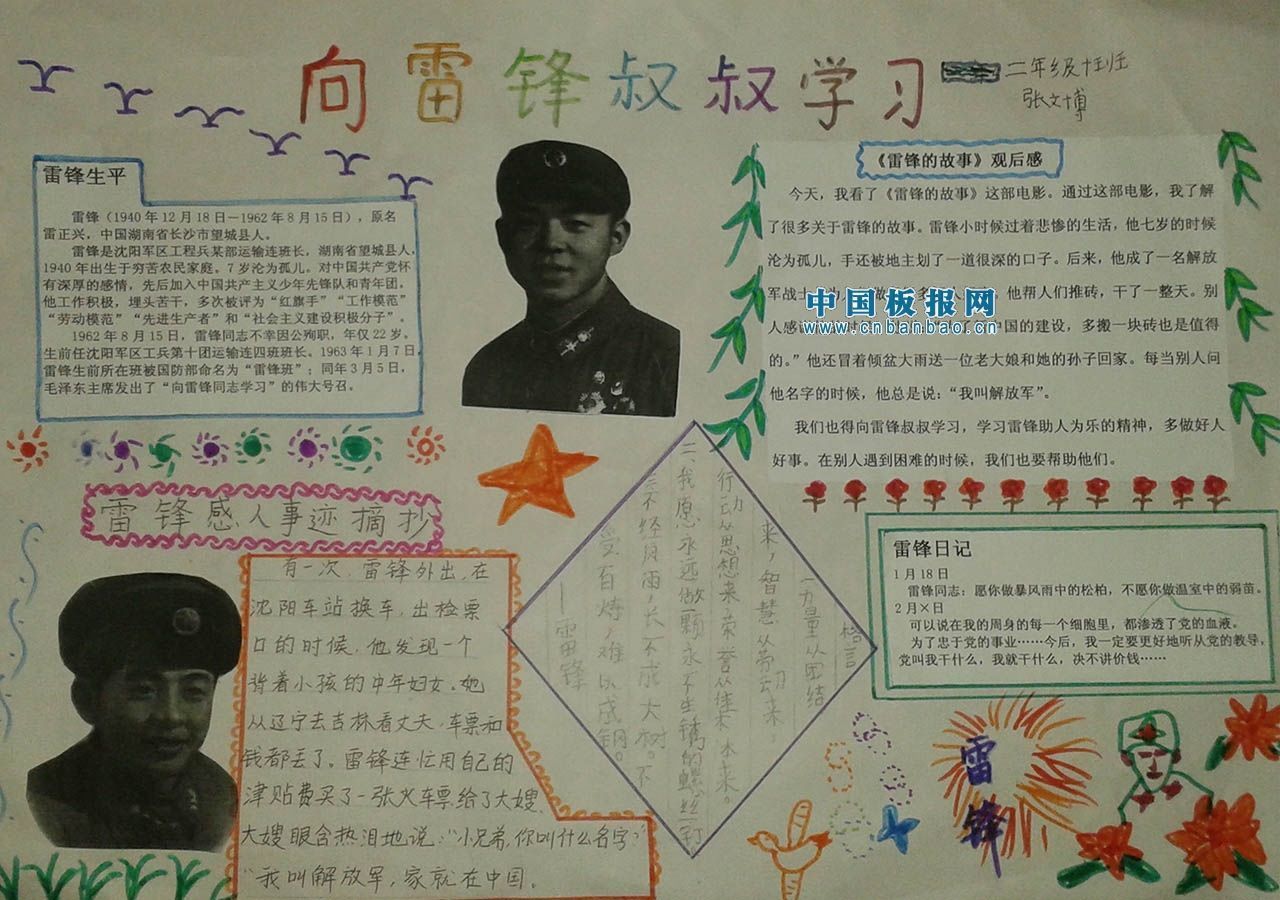 向雷锋叔叔学习
二年级
张文博
雷锋生平
雷锋（1940年12月18日—1962年8月15日），原名
雷正兴，中国湖南省长沙市望城县人。
雷锋是沈阳军区工程兵某部运输连班长，湖南省望城县人，
1940年出生于穷苦农民家庭。7岁沦为孤儿。对中国共产党怀
有深厚的感情，先后加入中国共产主义少年先锋队和青年团。
他工作积极，埋头苦干，多次被评为“红旗手”“工作模范”
“劳动模范”“先进生产者”和“社会主义建设积极分子”。
1962年8月15日，雷锋同志不幸因公殉职，年仅22岁。
生前任沈阳军区工兵第十团运输连四班班长。1963年1月7日，
雷锋生前所在班被国防部命名为“雷锋班”；同年3月5日，
毛泽东主席发出了“向雷锋同志学习”的伟大号召。
《雷锋的故事》观后感
今天，我看了《雷锋的故事》这部电影。通过这部电影，我了解
了很多关于雷锋的故事。雷锋小时候过着悲惨的生活，他七岁的时候
沦为孤儿，手还被地主划了一道很深的口子。后来，他成了一名解放
军战士 做 多 人 他帮人们推砖，干了一整天。别
人感 国的建设，多搬一块砖也是值得
的。”他还冒着倾盆大雨送一位老大娘和她的孙子回家。每当别人问
他名字的时候，他总是说：“我叫解放军”。
我们也得向雷锋叔叔学习，学习雷锋助人为乐的精神，多做好人
好事。在别人遇到困难的时候，我们也要帮助他们。
中国板报网
www.cnbanbao.cn
雷锋感人事迹摘抄
有一次，雷锋外出，在
沈阳车站换车，出检票
口的时候，他发现一个
背着小孩的中年妇女。她
从辽宁去吉林看丈夫，车票和
钱都丢了。雷锋连忙用自己的
津贴费买了一张火车票给了大嫂，
大嫂眼含热泪地说：“小兄弟，你叫什么名字”
“我叫解放军，家就在中国。
格言
一力量从团结
来，智慧从劳动来。
行动从思想来，荣誉从集体来。
二、我愿永远做一颗永不生锈的螺丝钉。
三不经风雨，长不成大树。不
受百炼，难以成钢。
——雷锋
雷锋日记
1月18日
雷锋同志：愿你做暴风雨中的松柏，不愿你做温室中的弱苗。
2月×日
可以说在我的周身的每一个细胞里，都渗透了党的血液。
为了忠于党的事业……今后，我一定要更好地听从党的教导，
党叫我干什么，我就干什么，决不讲价钱……
雷锋